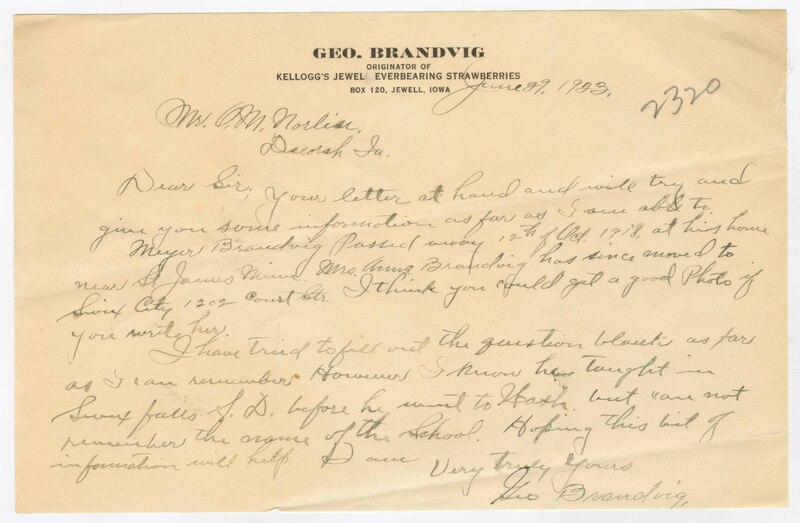 GEO. BRANDVIG
ORIGINATOR OF
KELLOGG'S JEWEL EVERBEARING STRAWBERRIES
BOX 120, JEWELL, IOWA
June 29, 1923.
2320
Mr. O.M. Norlie,
Decorah Ia.
Dear Sir; Your letter at hand and will try and
give you some information as far as I am able to.
Meyer Brandvig Passed away 12th of Oct. 1918, at his home
near St James Minn. Mrs. Anna Brandvig has since moved to
Sioux City 1202 Court Str. I think you could get a good Photo if
you write her.
I have tried to fill out the question blank as far
as I can remember However I know he taught in
Sioux falls S. D. before he went to Wash. but can not
remember the name of the School. Hoping this bit of
information will help I am
Very truly Yours
Geo Brandvig,